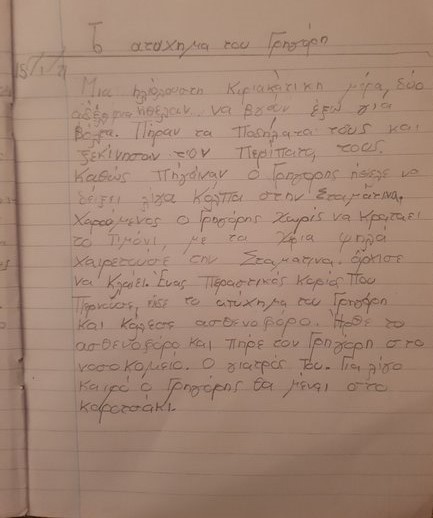 Τ ατύχημα του Γρηγόρη
15/1/21
Μια ηλιόλουστη Κυριακάτικη μέρα, δύο
αδέλφια ήθελαν να βγουν έξω για
βόλτα. Πήραν τα Ποδήλατα τους και
ξεκίνησαν τον Περίπατο τους.
Καθώς πήγαιναν ο Γρηγόρης ήθελε να
δείξει λίγα κόλπα στην Σταματίνα.
Χαρούμενος ο Γρηγόρης χωρίς να κρατάει
το τιμόνι, με τα χέρια ψηλά
χαιρετουσε την Σταματίνα. άρχισε
να κλαίει. Ένας Περαστικός Κύριος που
Περνούσε, είδε το ατύχημα του Γρηγόρη
και κάλεσε ασθενοφόρο. Ήρθε το
ασθενοφόρο και πήρε τον Γρηγόρη στο
νοσοκομείο. Ο γιατρός του. Για λίγο
καιρό ο Γρηγόρης θα μείνει στο
καροτσάκι.